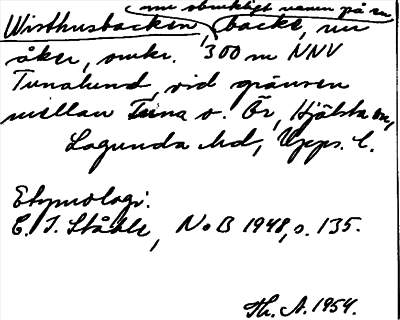 nu obrukligt namn på en
Wisthusbacken, backe, nu
åker, omkr. 300 m NNV
Tunalund, vid gränsen
mellan Tuna o. Ör, Hjälsta sn,
Lagunda hd, Upps. l.
Etymologi:
C. I. Ståhle, NoB 1948, s. 135.
Th. A. 1954.